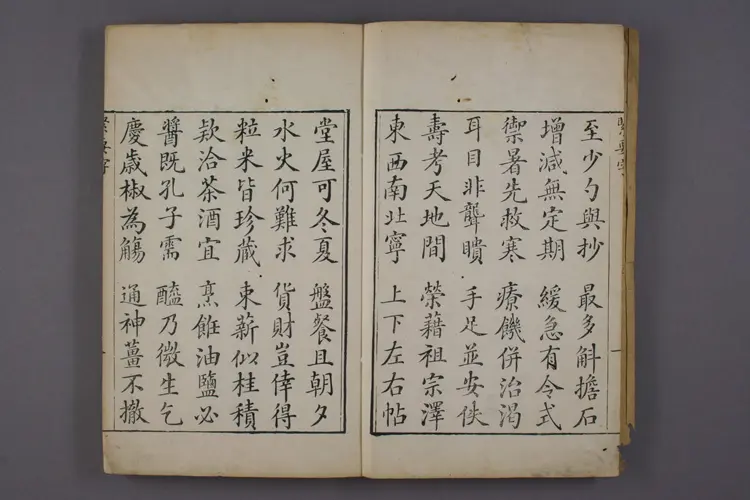 至少勺與抄 最多斛擔石
增減無定期 緩急有令式
禦暑先救寒 療饑併治渴
耳目非聾瞶 手足並安佚
壽考天地間 榮藉祖宗澤
東西南北寧 上下左右帖
堂屋可冬夏 盤餐且朝夕
水火何難求 貨財豈倖得
粒米皆珍藏 束薪似桂積
欵洽茶酒宜 烹飪油鹽必
醬既孔子需 醯乃微生乞
慶歲椒為觴 通神薑不撤